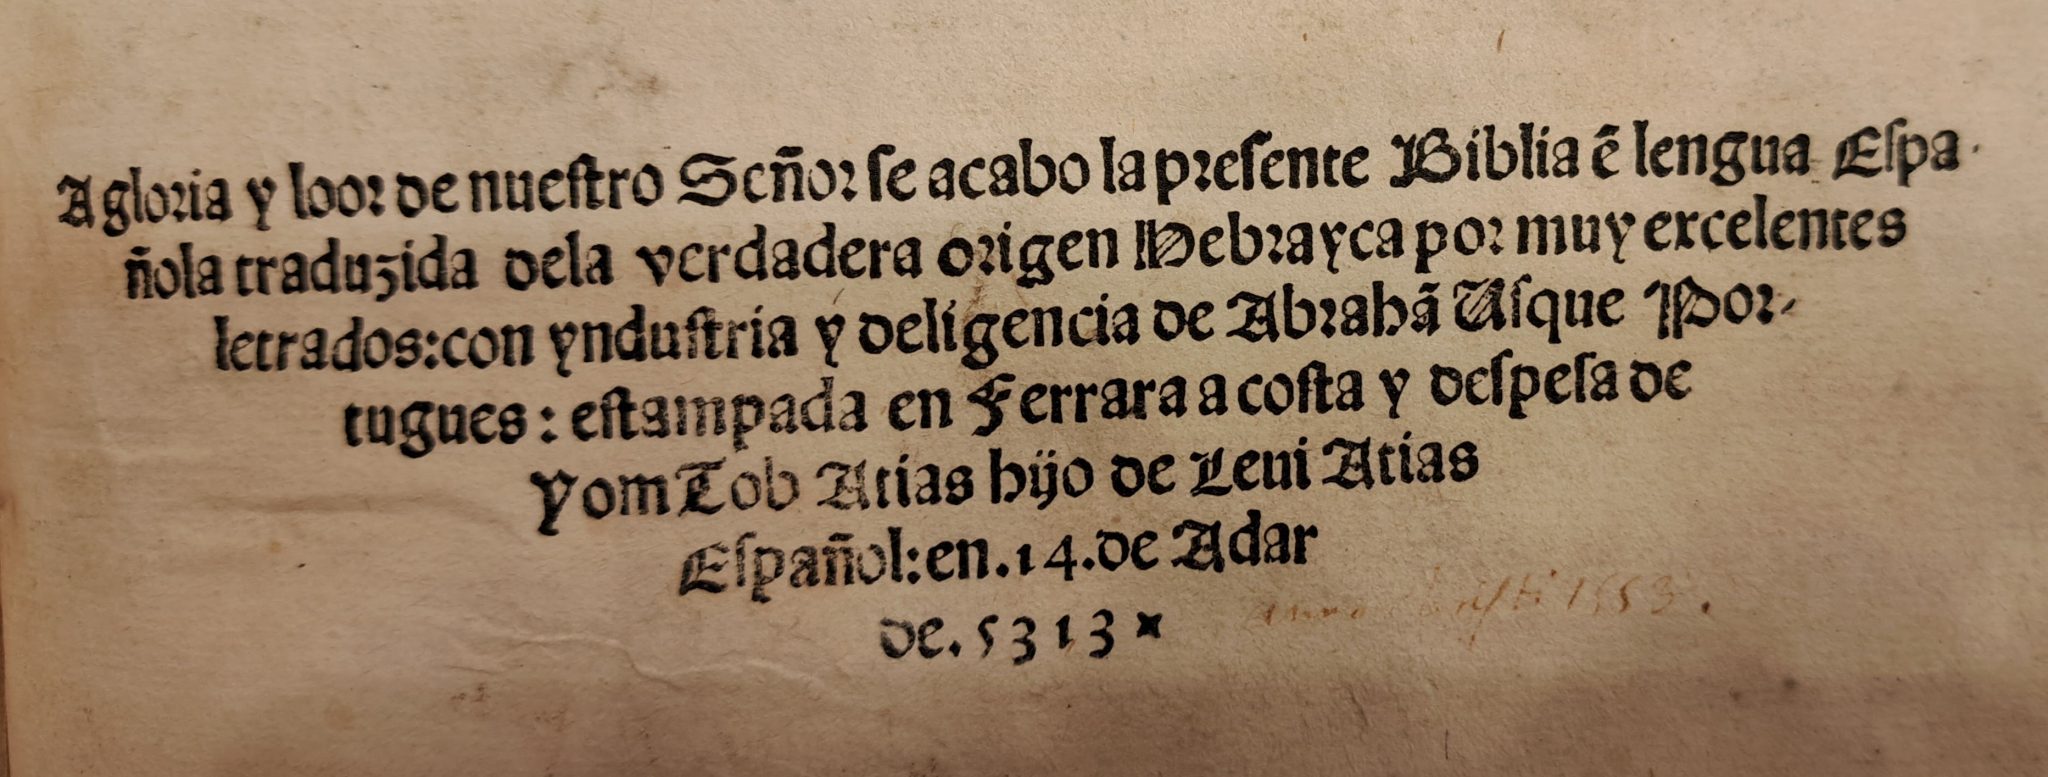 A gloria y loor de nuestro Señor se acabo la presente Biblia ẽ lengua Espa
ñola traduzida dela verdadera origen Hebrayca por muy excelentes
letrados: con yndustria y deligencia de Abrahã Usque Por-
tugues: estampada en Ferrara a costa y despesa de
Yom Tob Atias hijo de Leui Atias
Español: en .14. de Adar
de. 5313
anno Christi 1553.